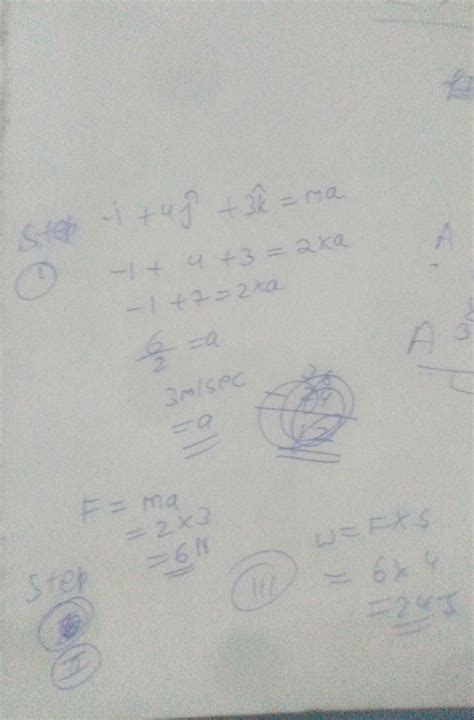 Step
I
-i + 4ĵ + 3k̂ = ma
-1 + 4 + 3 = 2×a
-1 + 7 = 2×a
6/2 = a
3m/sec
= a
A
A 3
F = ma
= 2×3
= 6N
Step
II
III
W = F×S
= 6×4
= 24J